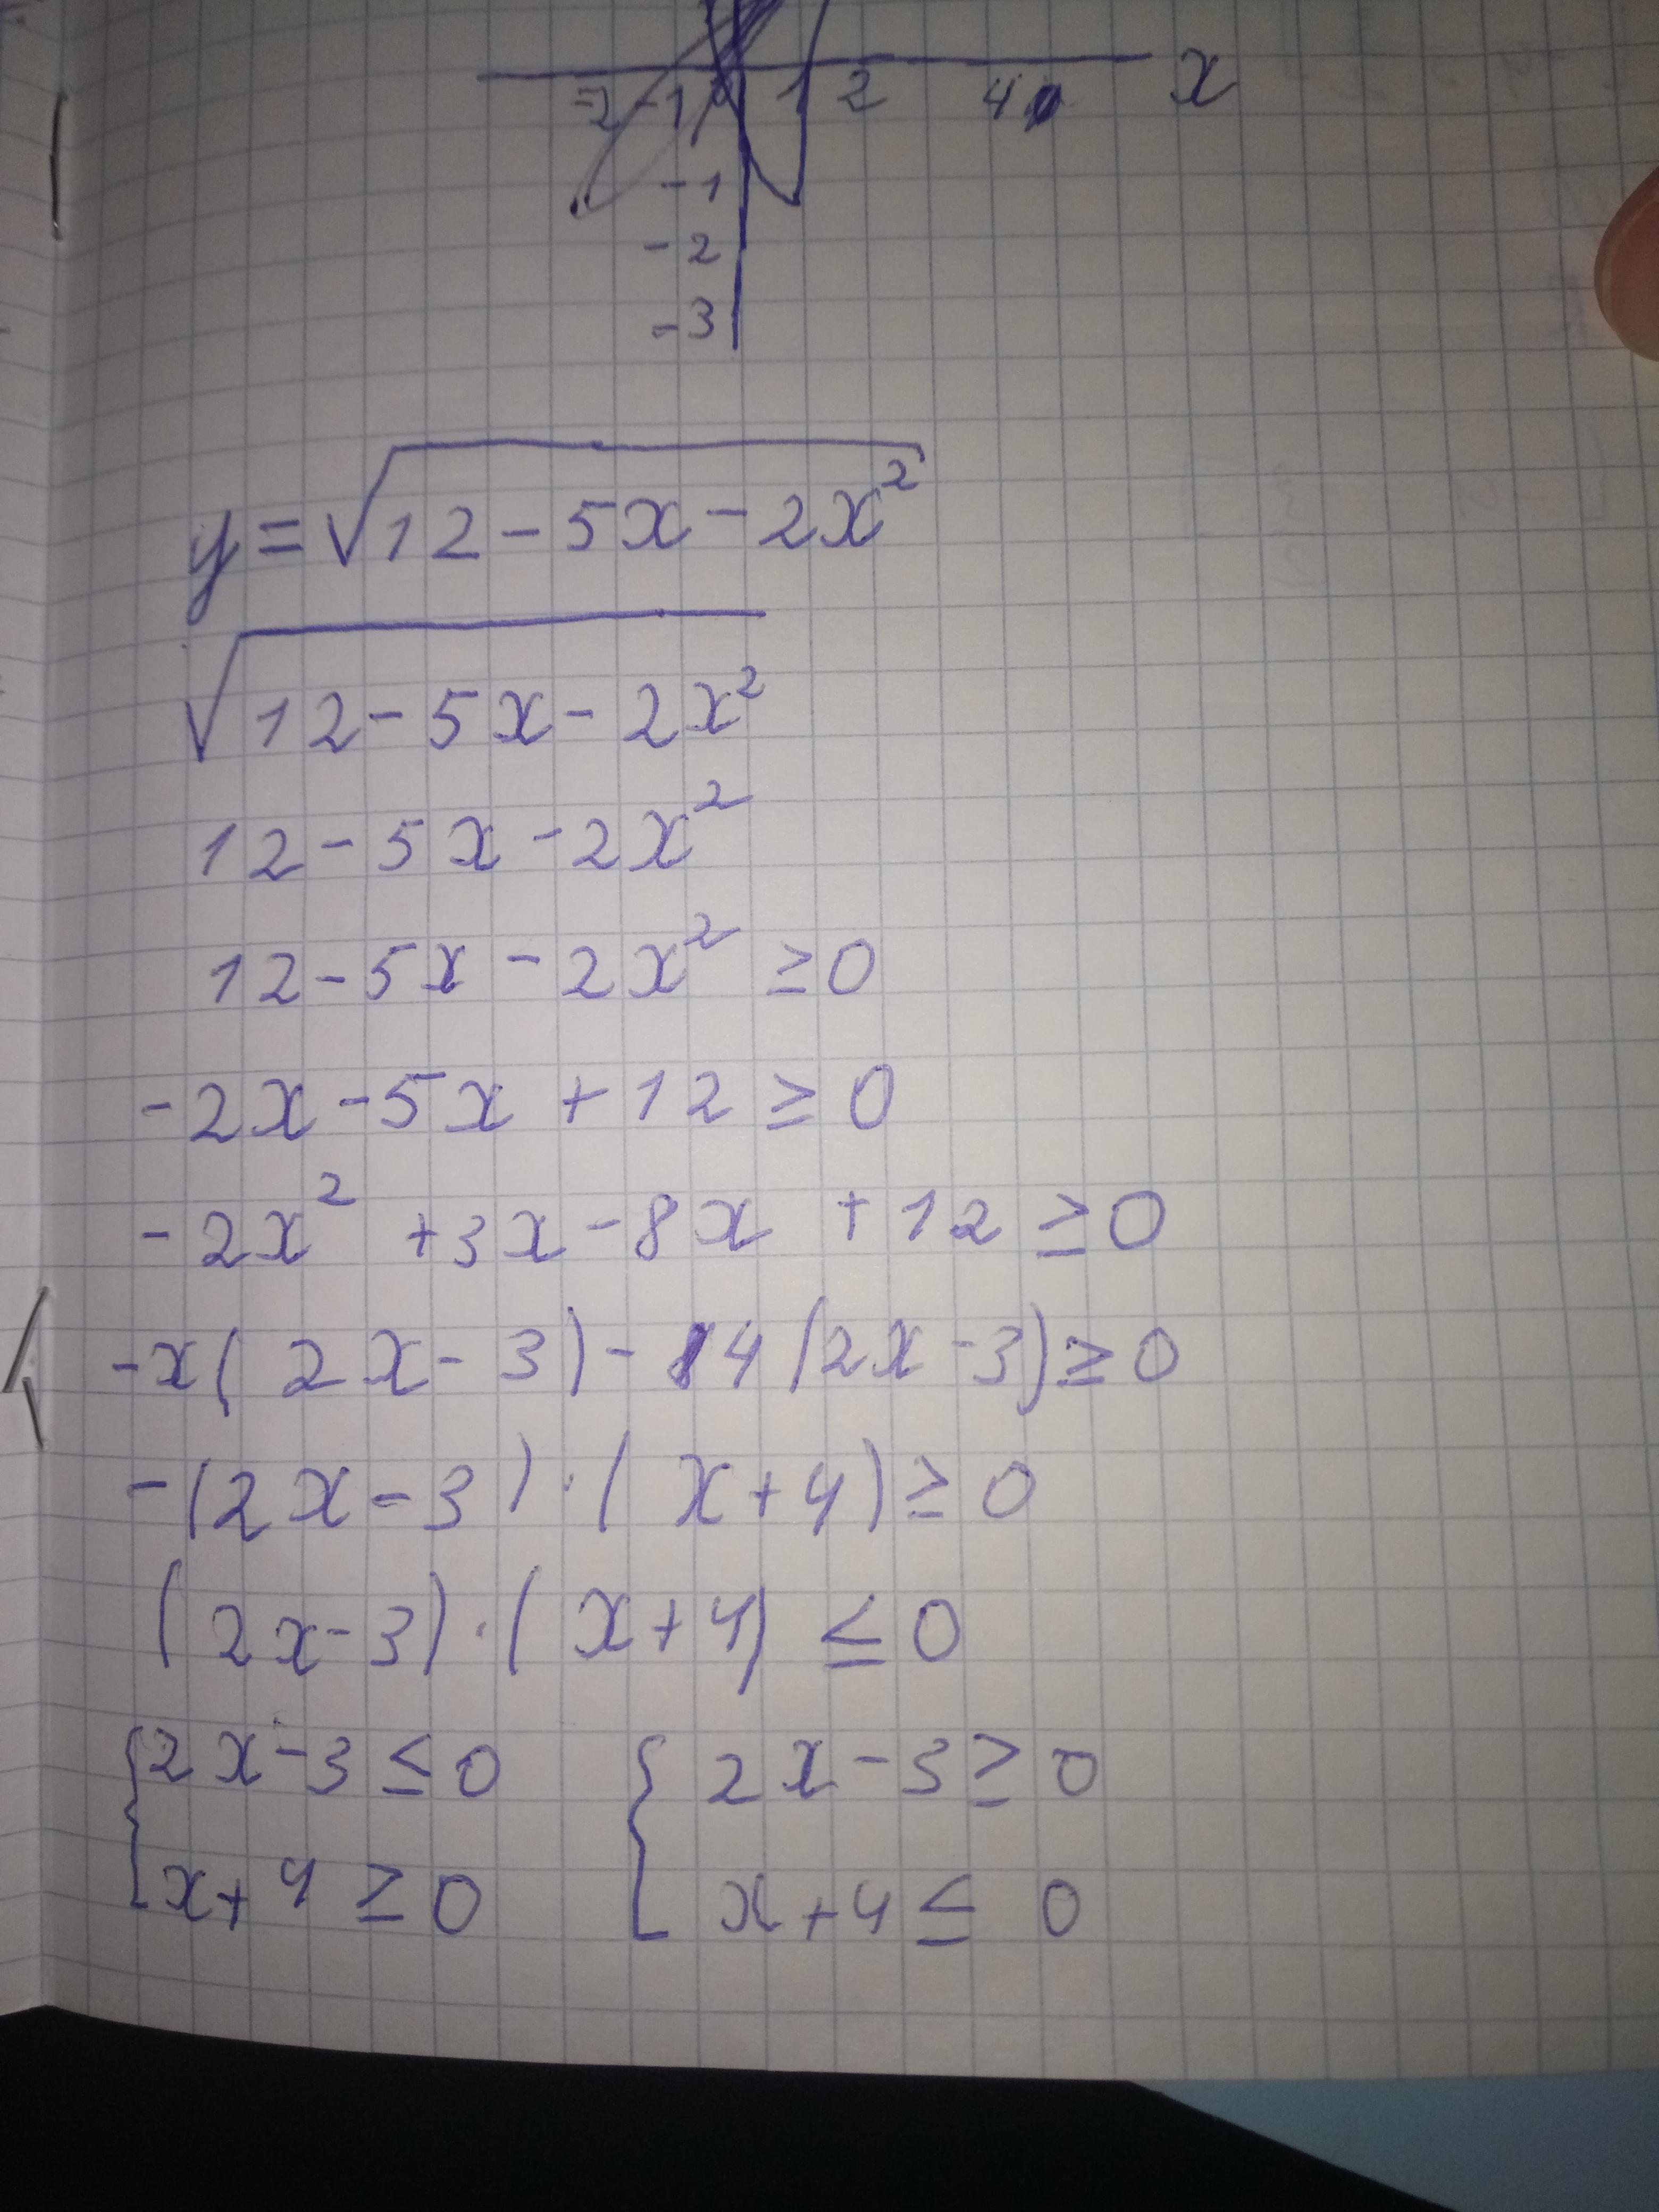 -2 -1 0 1 2 4 x
-1
-2
-3
y = √(12 - 5x - 2x²)
√(12 - 5x - 2x²)
12 - 5x - 2x²
12 - 5x - 2x² ≥ 0
-2x - 5x + 12 ≥ 0
-2x² + 3x - 8x + 12 ≥ 0
-x(2x - 3) - 4(2x - 3) ≥ 0
-(2x - 3) · (x + 4) ≥ 0
(2x - 3) · (x + 4) ≤ 0
{2x - 3 ≤ 0 {2x - 3 ≥ 0
x + 4 ≥ 0 x + 4 ≤ 0